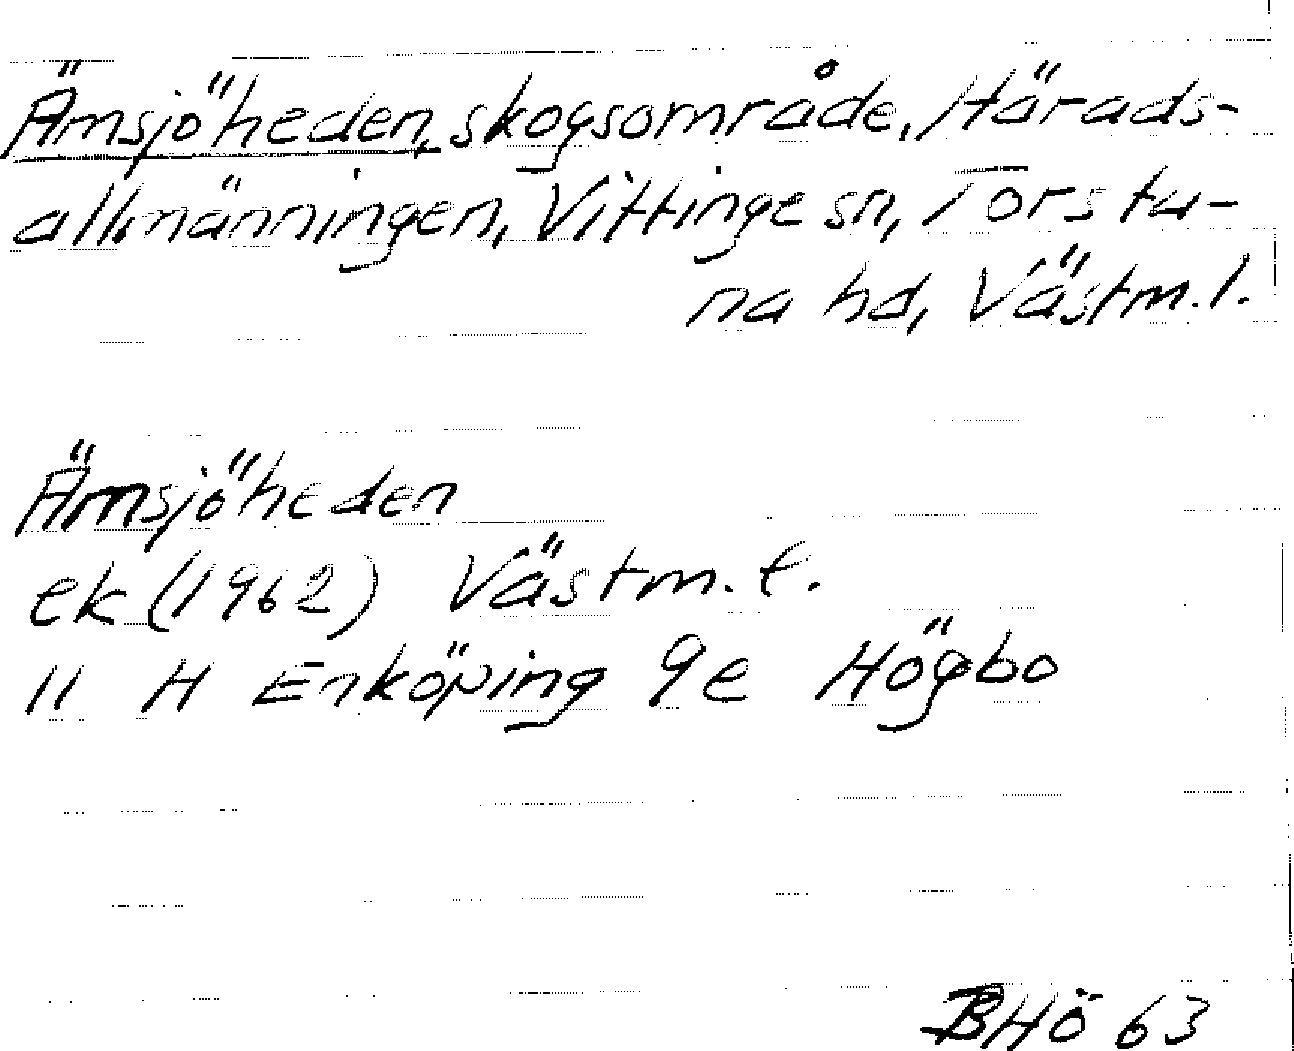 Ämsjöheden, skogsområde, Härads-
allmänningen, Vittinge sn, Torstu-
na hd, Västm. l.
Ämsjöheden
ek (1962) Västm. l.
11 H Enköping 9e Högbo
BHö 63